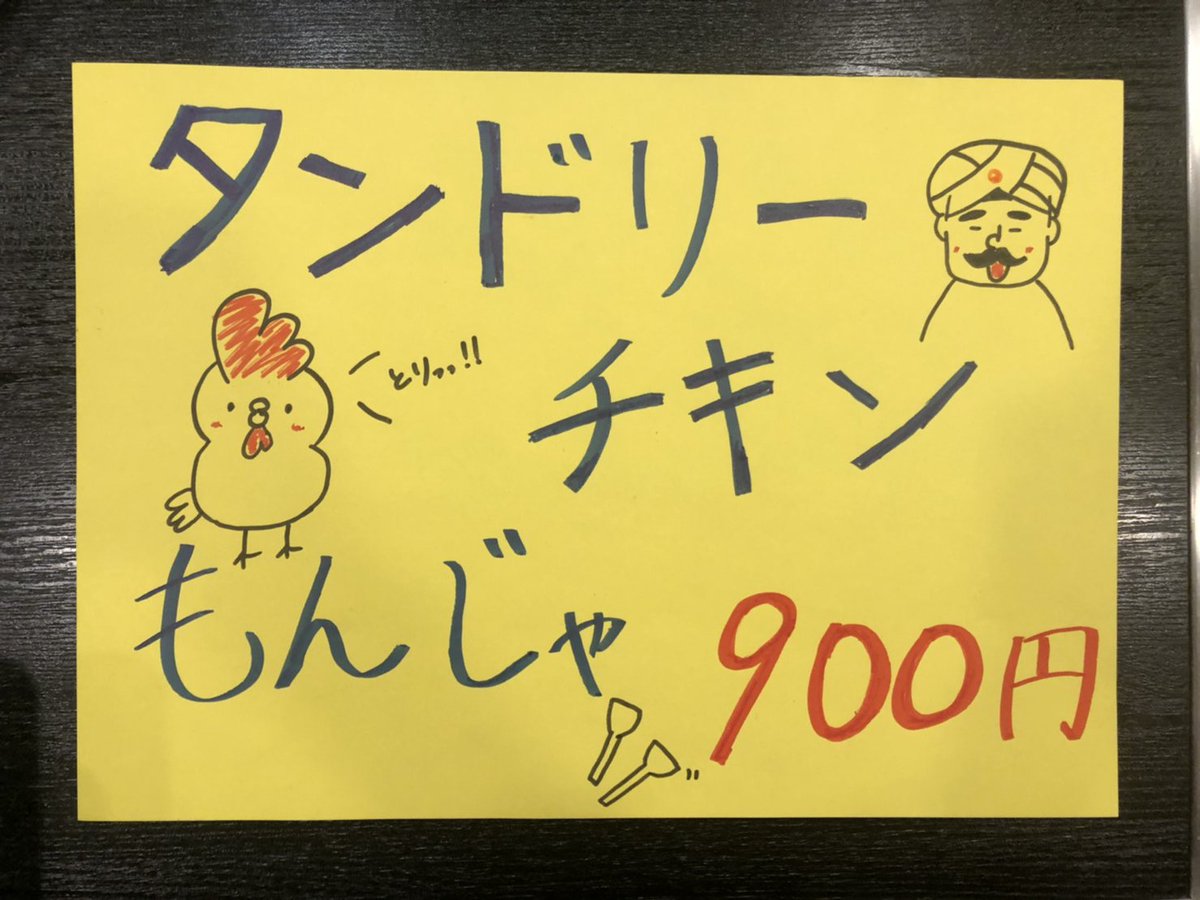 タンドリー
とりっっ!!
チキン
もんじゃ
900円